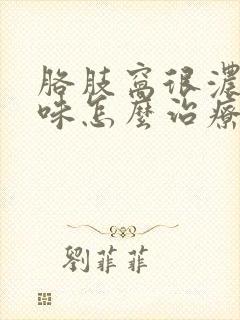 胳肢窩很濃
味怎麼治療
劉菲菲